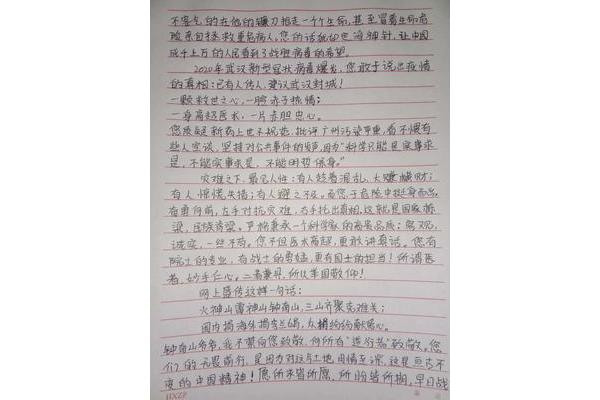 不客气的在他的镰刀抢走一个个生命,甚至冒着生命危
险亲自拯救重危病人。您的话就如定海神针,让中国
成千上万的人民看到了战胜病毒的希望。
2020年武汉新型冠状病毒爆发,您敢于说出疫情
的真相:已有人传人,建议武汉封城!
一颗救世之心,一脸赤子热情;
一身高超医术,一片赤胆忠心。
您质疑新药上世不规范,批评广州污染严重,看不惯有
些人空谈,坚持对公共事件的发声,因为“科学只能是实事求
是,不能实事求是,不能明哲保身。”
灾难之下,最见人性:有人趁着混乱,大赚横财;
有人惊慌失措;有人避之不及。而您于危险中挺身而出,
有勇向前,左手对抗灾难,右手托出真相。这就是国家栋
梁,民族脊梁。严格秉承一个科学家的高贵品质:客观、
诚实,一丝不苟。您不但医术高超,更敢讲真话。您有
院士的专业,有战士的勇猛,更有国士的担当!所谓医
者,妙手仁心。二者兼具,所以举国敬仰!
网上盛传这样一句话:
火神山雷神山钟南山,三山齐聚克难关;
国内捐海外捐
钟南山爷爷,我不禁向您致敬,向所有“逆行者”致敬。您
们的无畏前行,是因为对这片土地,用情至深,这是亘古不
变的中国精神!愿所求皆所愿,所盼皆所期,早日战
HXZP